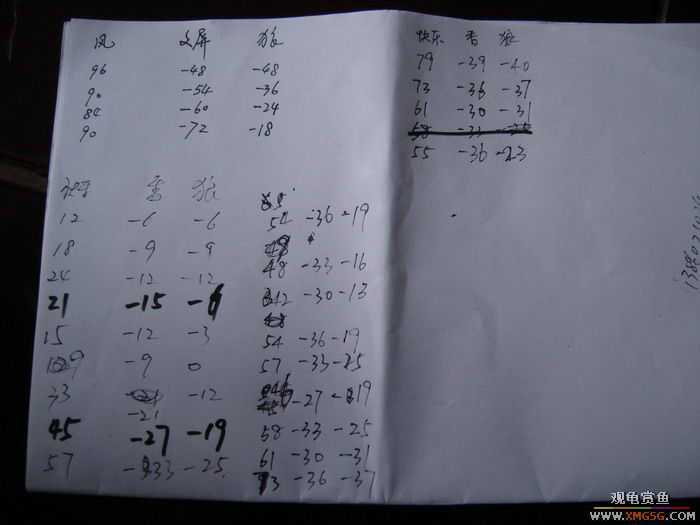 风 文屏 狼
96 -48 -48
90 -54 -36
84 -60 -24
90 -72 -18
快乐 香 狼
79 -39 -40
73 -36 -37
61 -30 -31
58 -33
55 -36 -23
快乐 香 狼
12 -6 -6
18 -9 -9
24 -12 -12
21 -15 -6
15 -12 -3
9 -9 0
33 -21 -12
45 -27 -19
57 -33 -25
54 -36 -19
48 -33 -16
42 -30 -13
54 -36 -19
57 -33 -25
46 -27 -19
58 -33 -25
61 -30 -31
73 -36 -37
观龟赏鱼
www.XMGSG.com